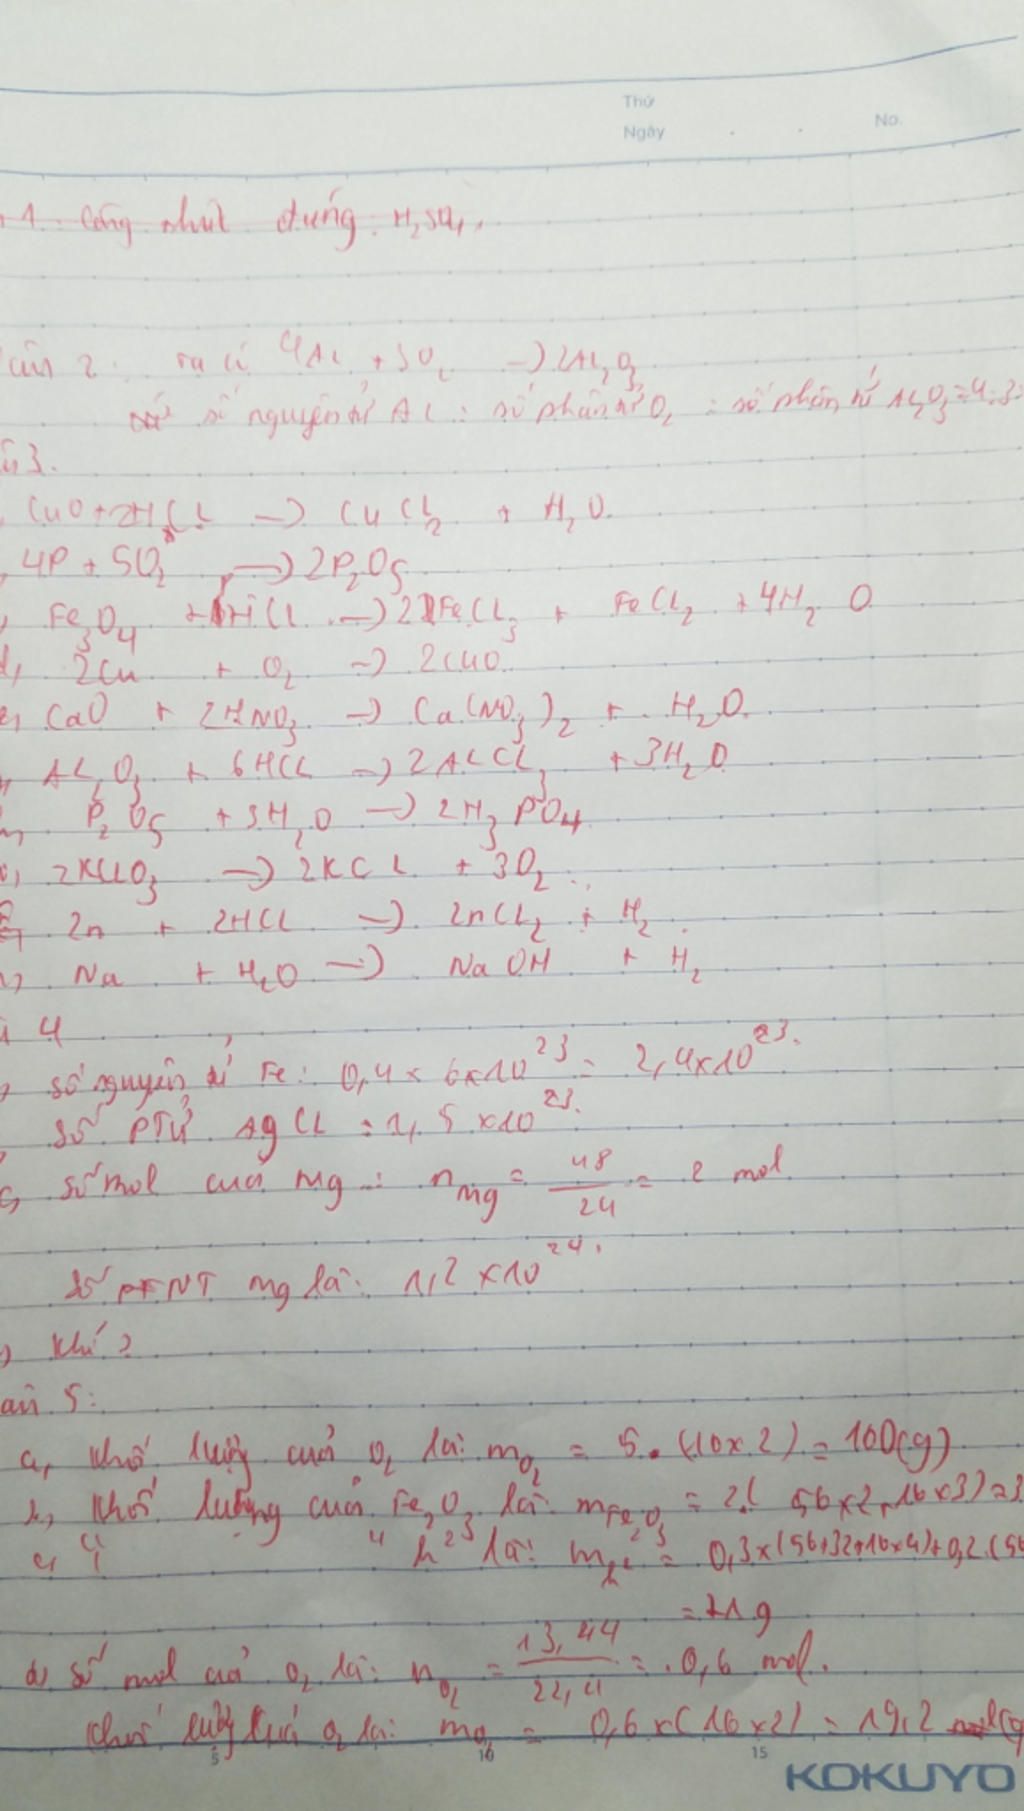 Thứ
Ngày No.
1. Công thức đúng: H₂SO₄.
câu 2: Ta có 4Al + 3O₂ → 2Al₂O₃
số nguyên tử Al : số phân tử O₂ : số phân tử Al₂O₃ = 4:3:
3.
CuO + 2HCl → CuCl₂ + H₂O.
4P + 5O₂ → 2P₂O₅
Fe₃O₄ + HCl → 2FeCl₃ + FeCl₂ + 4H₂O
d, 2Cu + O₂ → 2CuO.
e, CaO + 2HNO₃ → Ca(NO₃)₂ + H₂O.
Al₂O₃ + 6HCl → 2AlCl₃ + 3H₂O
P₂O₅ + 3H₂O → 2H₃PO₄
2KClO₃ → 2KCl + 3O₂
Zn + 2HCl → ZnCl₂ + H₂
Na + H₂O → NaOH + H₂
4
số nguyên tử Fe: 0,4 × 6×10²³ = 2,4×10²³.
số PTử AgCl = 1,5 ×10²³.
c, số mol của Mg : nMg = 48/24 = 2 mol
Số NT Mg là: 1,2 ×10²⁴.
khí
câu 5:
a, khối lượng của O₂ là: mO₂ = 5.(10×2) = 100(g)
b, khối lượng của Fe₂O₃ là: mFe₂O₃ = 2.(56×2+16×3)=3
c, " " h² là: m = 0,3×(56+32+16×4)+0,2.(56
= 71g
d, số mol của O₂ là: nO₂ = 13,44/22,4 = 0,6 mol.
khối lượng của O₂ là: mO₂ = 0,6×(16×2) = 19,2 (g
5 10 15
KOKUYO